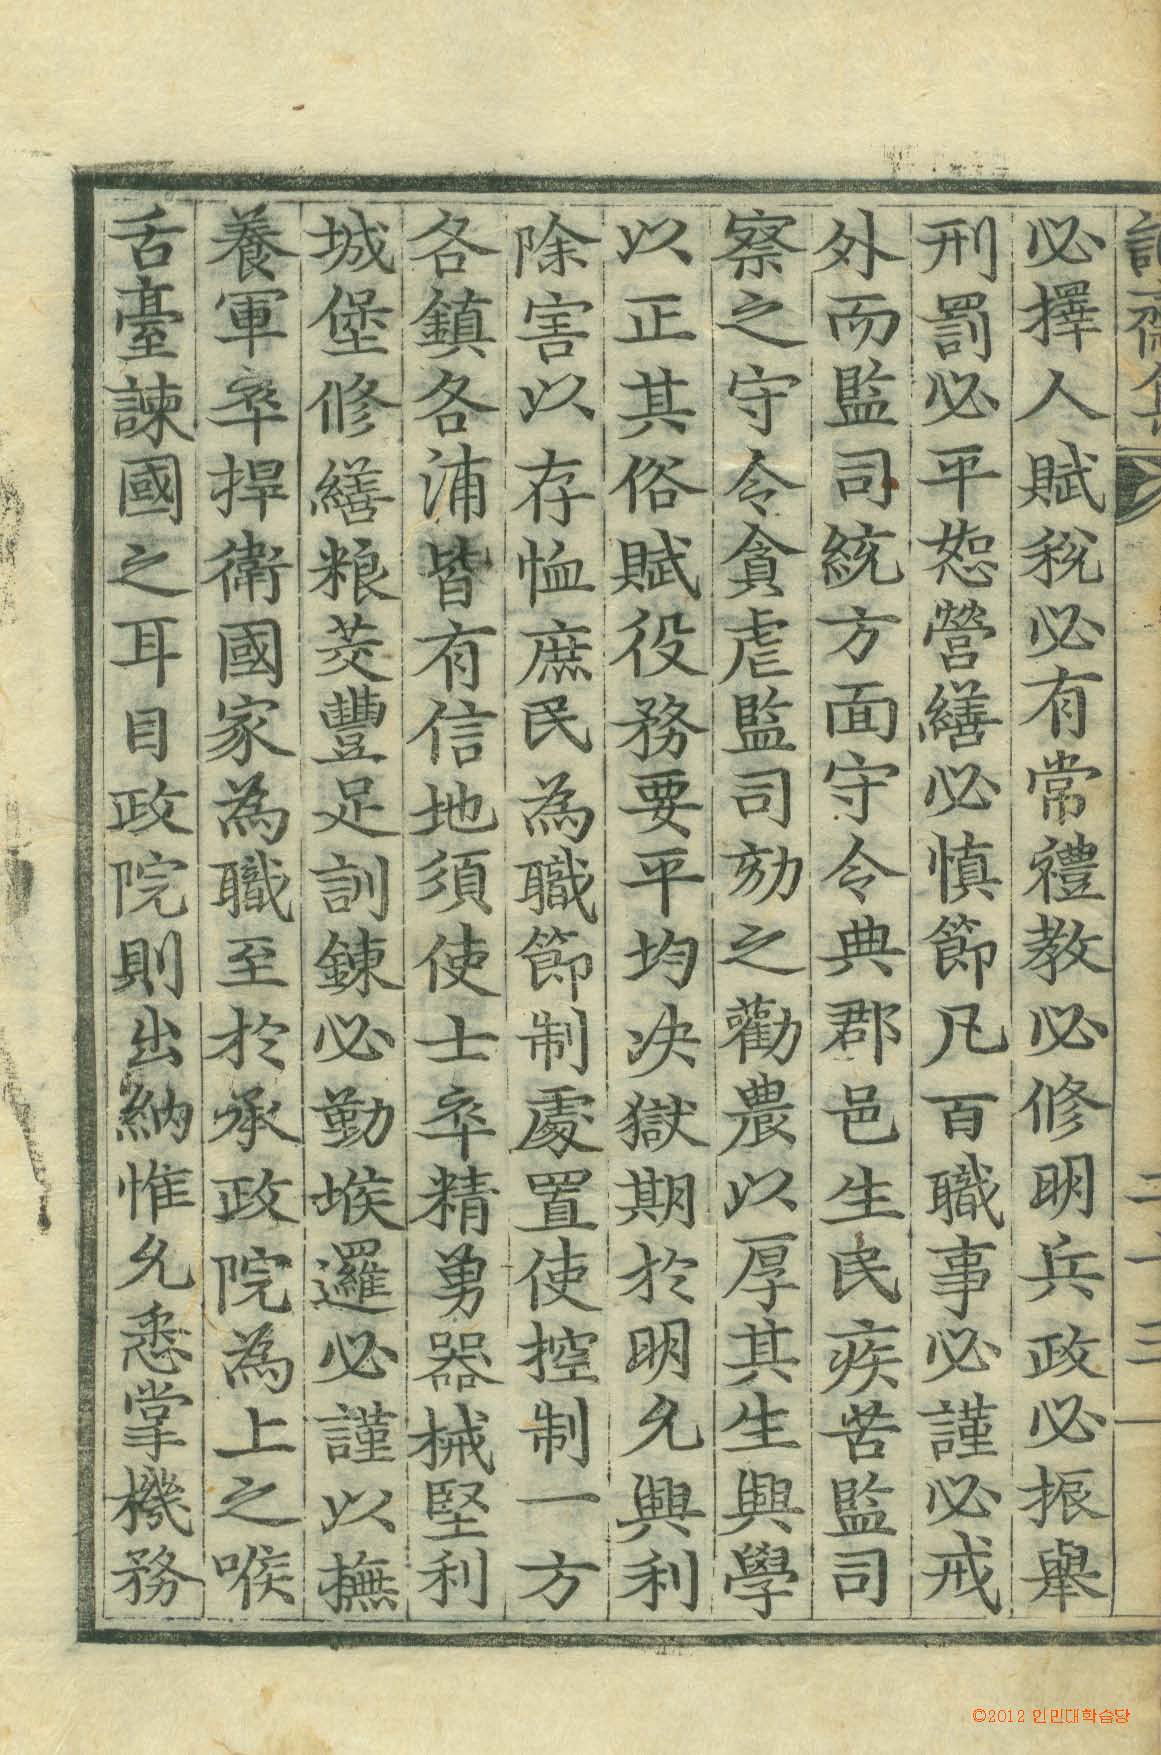 必擇人賦稅必有常禮教必修明兵政必振舉
刑罰必平恕營繕必慎節凡百職事必謹必戒
外而監司統方面守令典郡邑生民疾苦監司
察之守令貪虐監司劾之勸農以厚其生興學
以正其俗賦役務要平均决獄期於明允興利
除害以存恤庶民為職節制處置使控制一方
各鎮各浦皆有信地須使士卒精勇器械堅利
城堡修繕粮茭豐足訓鍊必勤堠邏必謹以撫
養軍卒捍衛國家為職至於承政院為上之喉
舌臺諫國之耳目政院則出納惟允悉掌機務
二十三
©2012 인민대학습당